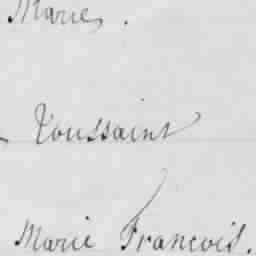 Marie.
Toussaint
Marie François.